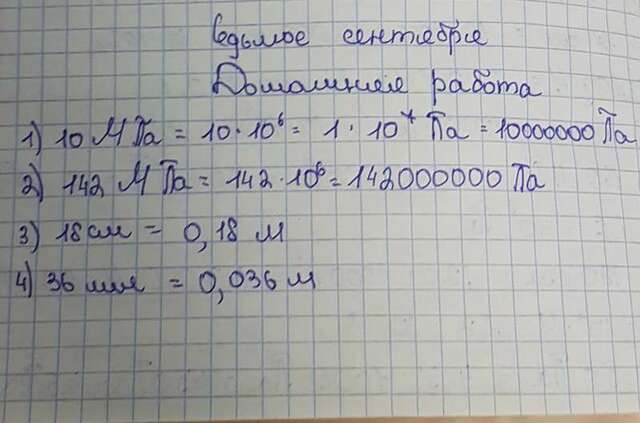 Седьмое сентября
Домашняя работа
1) 10 МПа = 10·10⁶ = 1·10⁷ Па = 10000000 Па
2) 142 МПа = 142·10⁶ = 142000000 Па
3) 18см = 0,18 м
4) 36 мм = 0,036 м